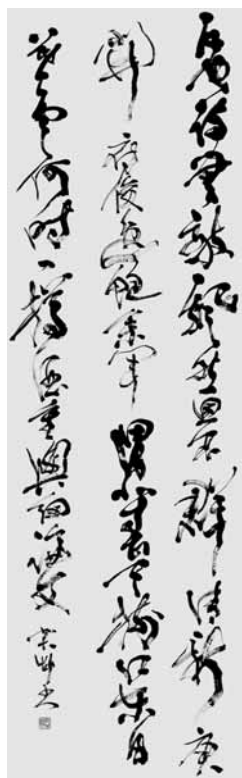 白也詩無敵飄然思不群清新庾
開府俊逸鮑參軍渭北春天樹江東日
暮雲何時一樽酒重與細論文